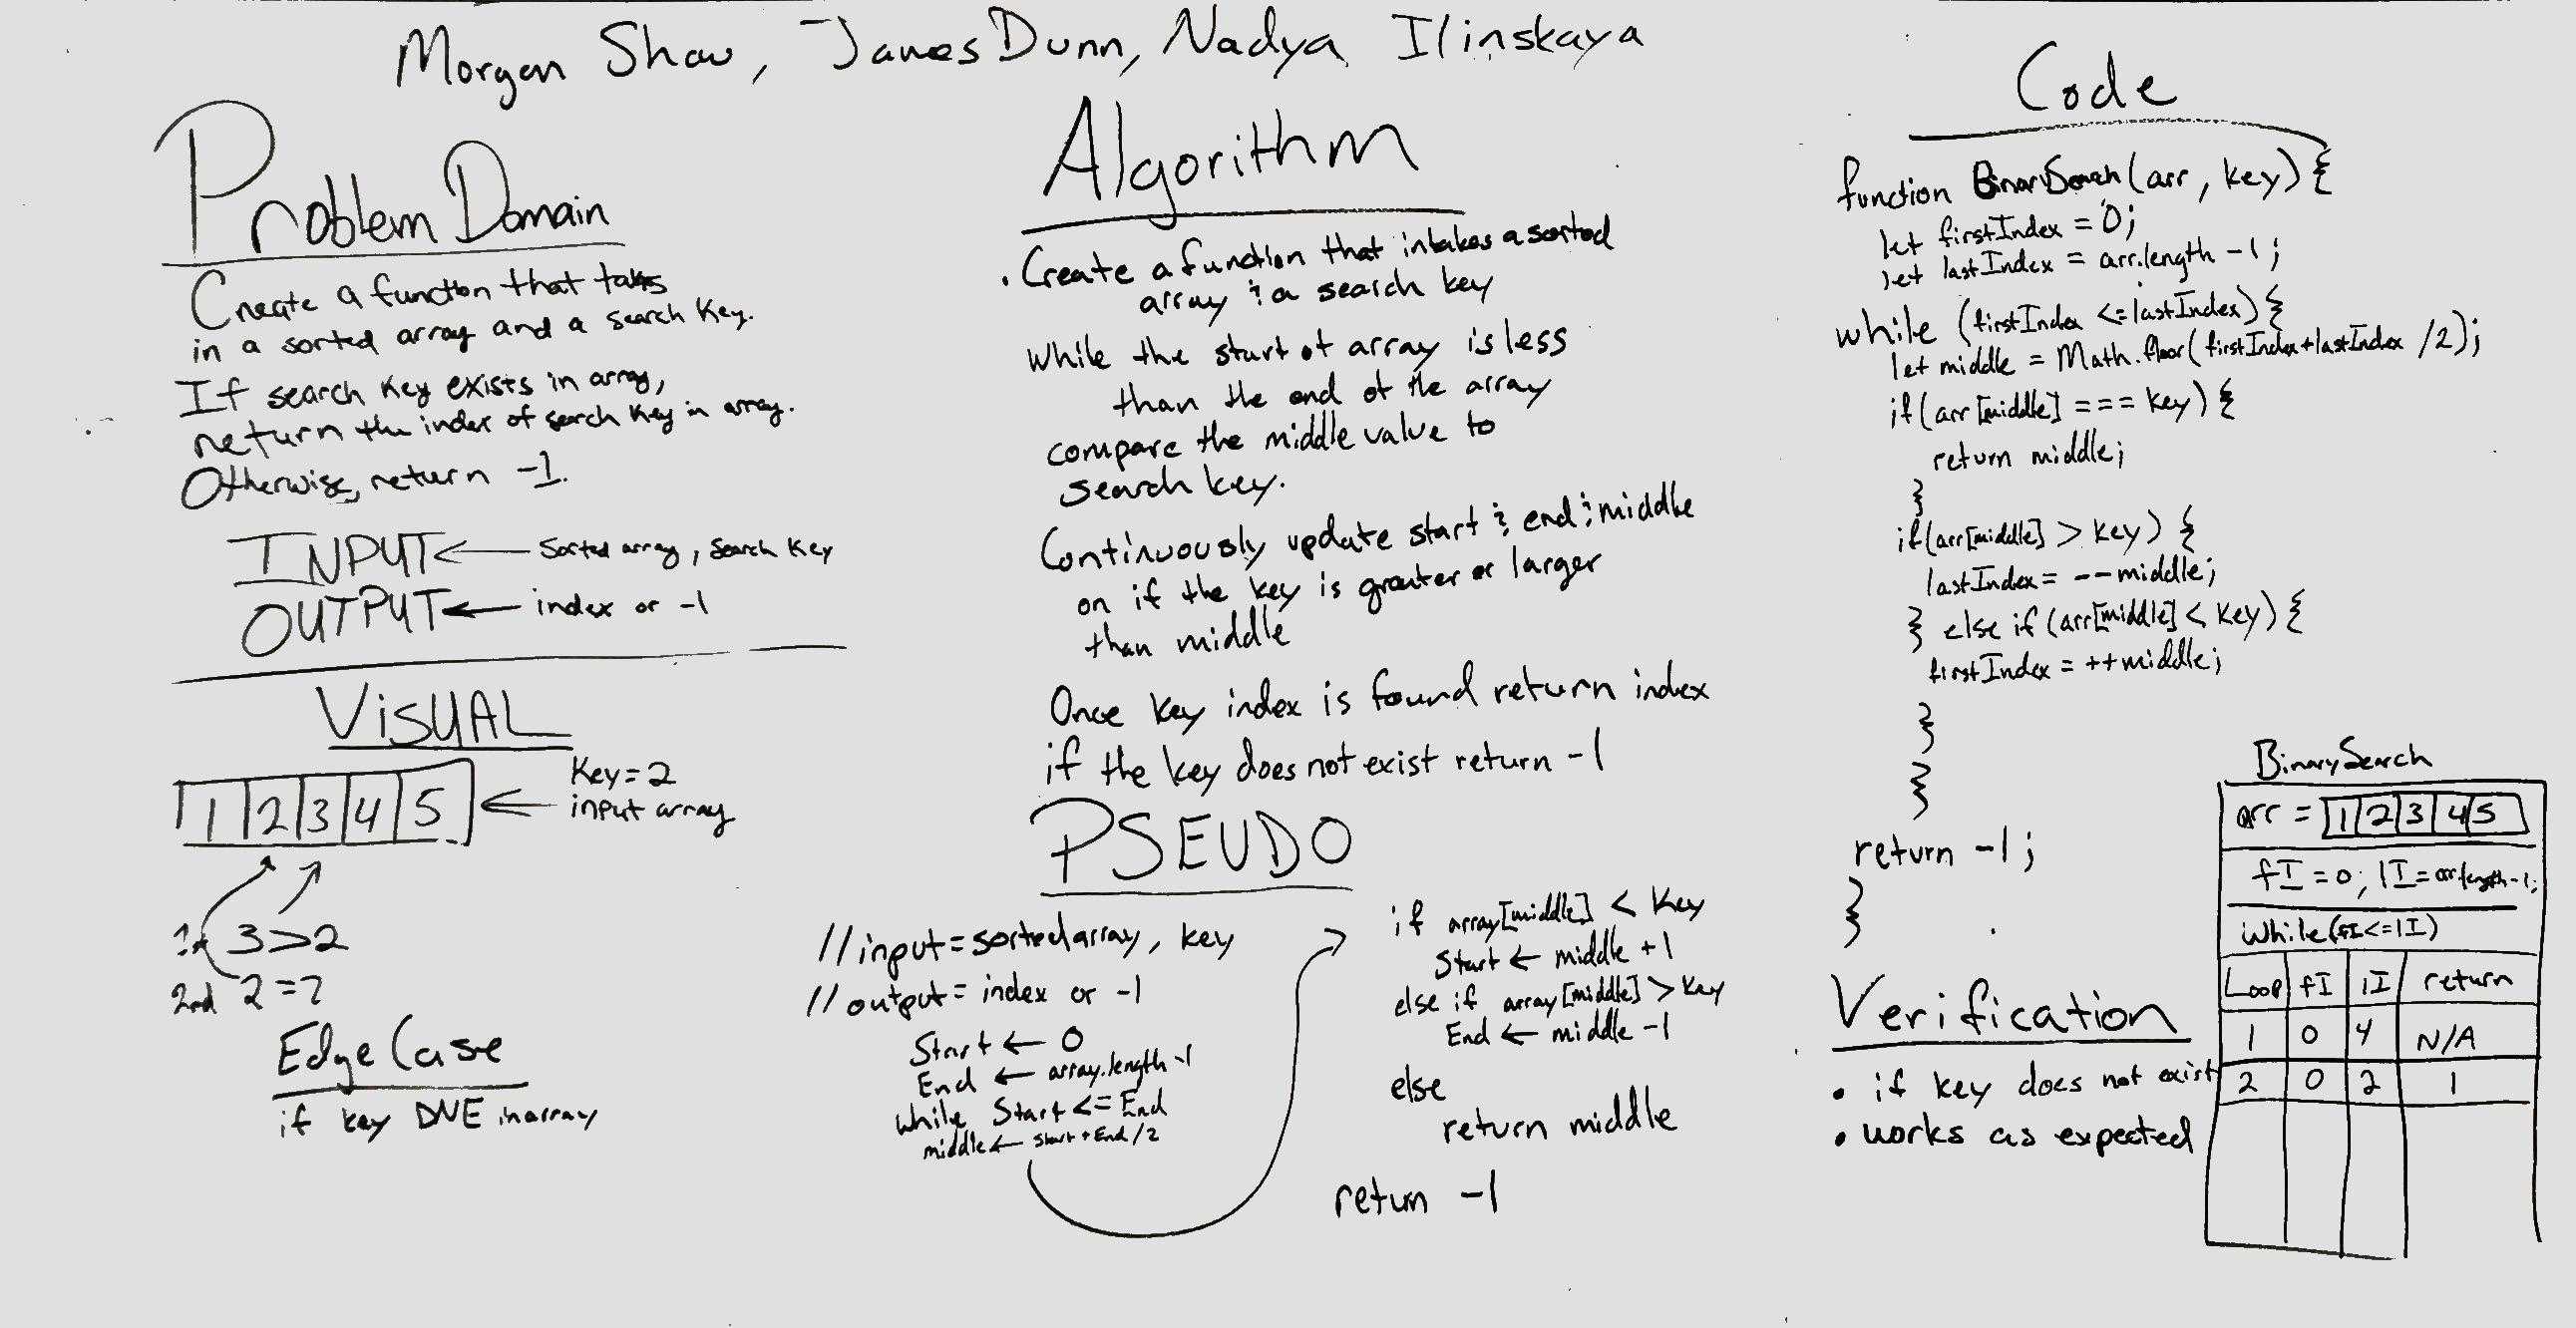 Morgan Shaw, James Dunn, Nadya Ilinskaya
Problem Domain
Create a function that takes
in a sorted array and a search key.
If search key exists in array,
return the index of search key in array.
Otherwise, return -1.
INPUT ← sorted array, search key
OUTPUT ← index or -1
VISUAL
1 2 3 4 5
Key=2
input array
1st 3>2
2nd 2=2
Edge Case
if key DNE in array
Algorithm
. Create a function that intakes a sorted
array & a search key
While the start of array is less
than the end of the array
compare the middle value to
search key.
Continuously update start & end & middle
on if the key is greater or larger
than middle
Once key index is found return index
if the key does not exist return -1
PSEUDO
//input=sorted array, key
//output= index or -1
Start ← 0
End ← array.length -1
while Start <= End
middle ← start + End /2
if array[middle] < Key
Start ← middle +1
else if array[middle] > Key
End ← middle -1
else
return middle
return -1
Code
function BinarySearch(arr, key) {
let firstIndex = 0;
let lastIndex = arr.length -1;
while (firstIndex <= lastIndex) {
let middle = Math.floor(firstIndex+lastIndex /2);
if(arr[middle] === key) {
return middle;
}
if(arr[middle] > key) {
lastIndex = --middle;
} else if (arr[middle] < key) {
firstIndex = ++middle;
}
}
return -1;
}
Verification
• if key does not exist
• works as expected
BinarySearch
arr = 1 2 3 4 5
fI = 0; lI = arr.length-1;
while(fI<=lI)
Loop fI lI return
1 0 4 N/A
2 0 2 1